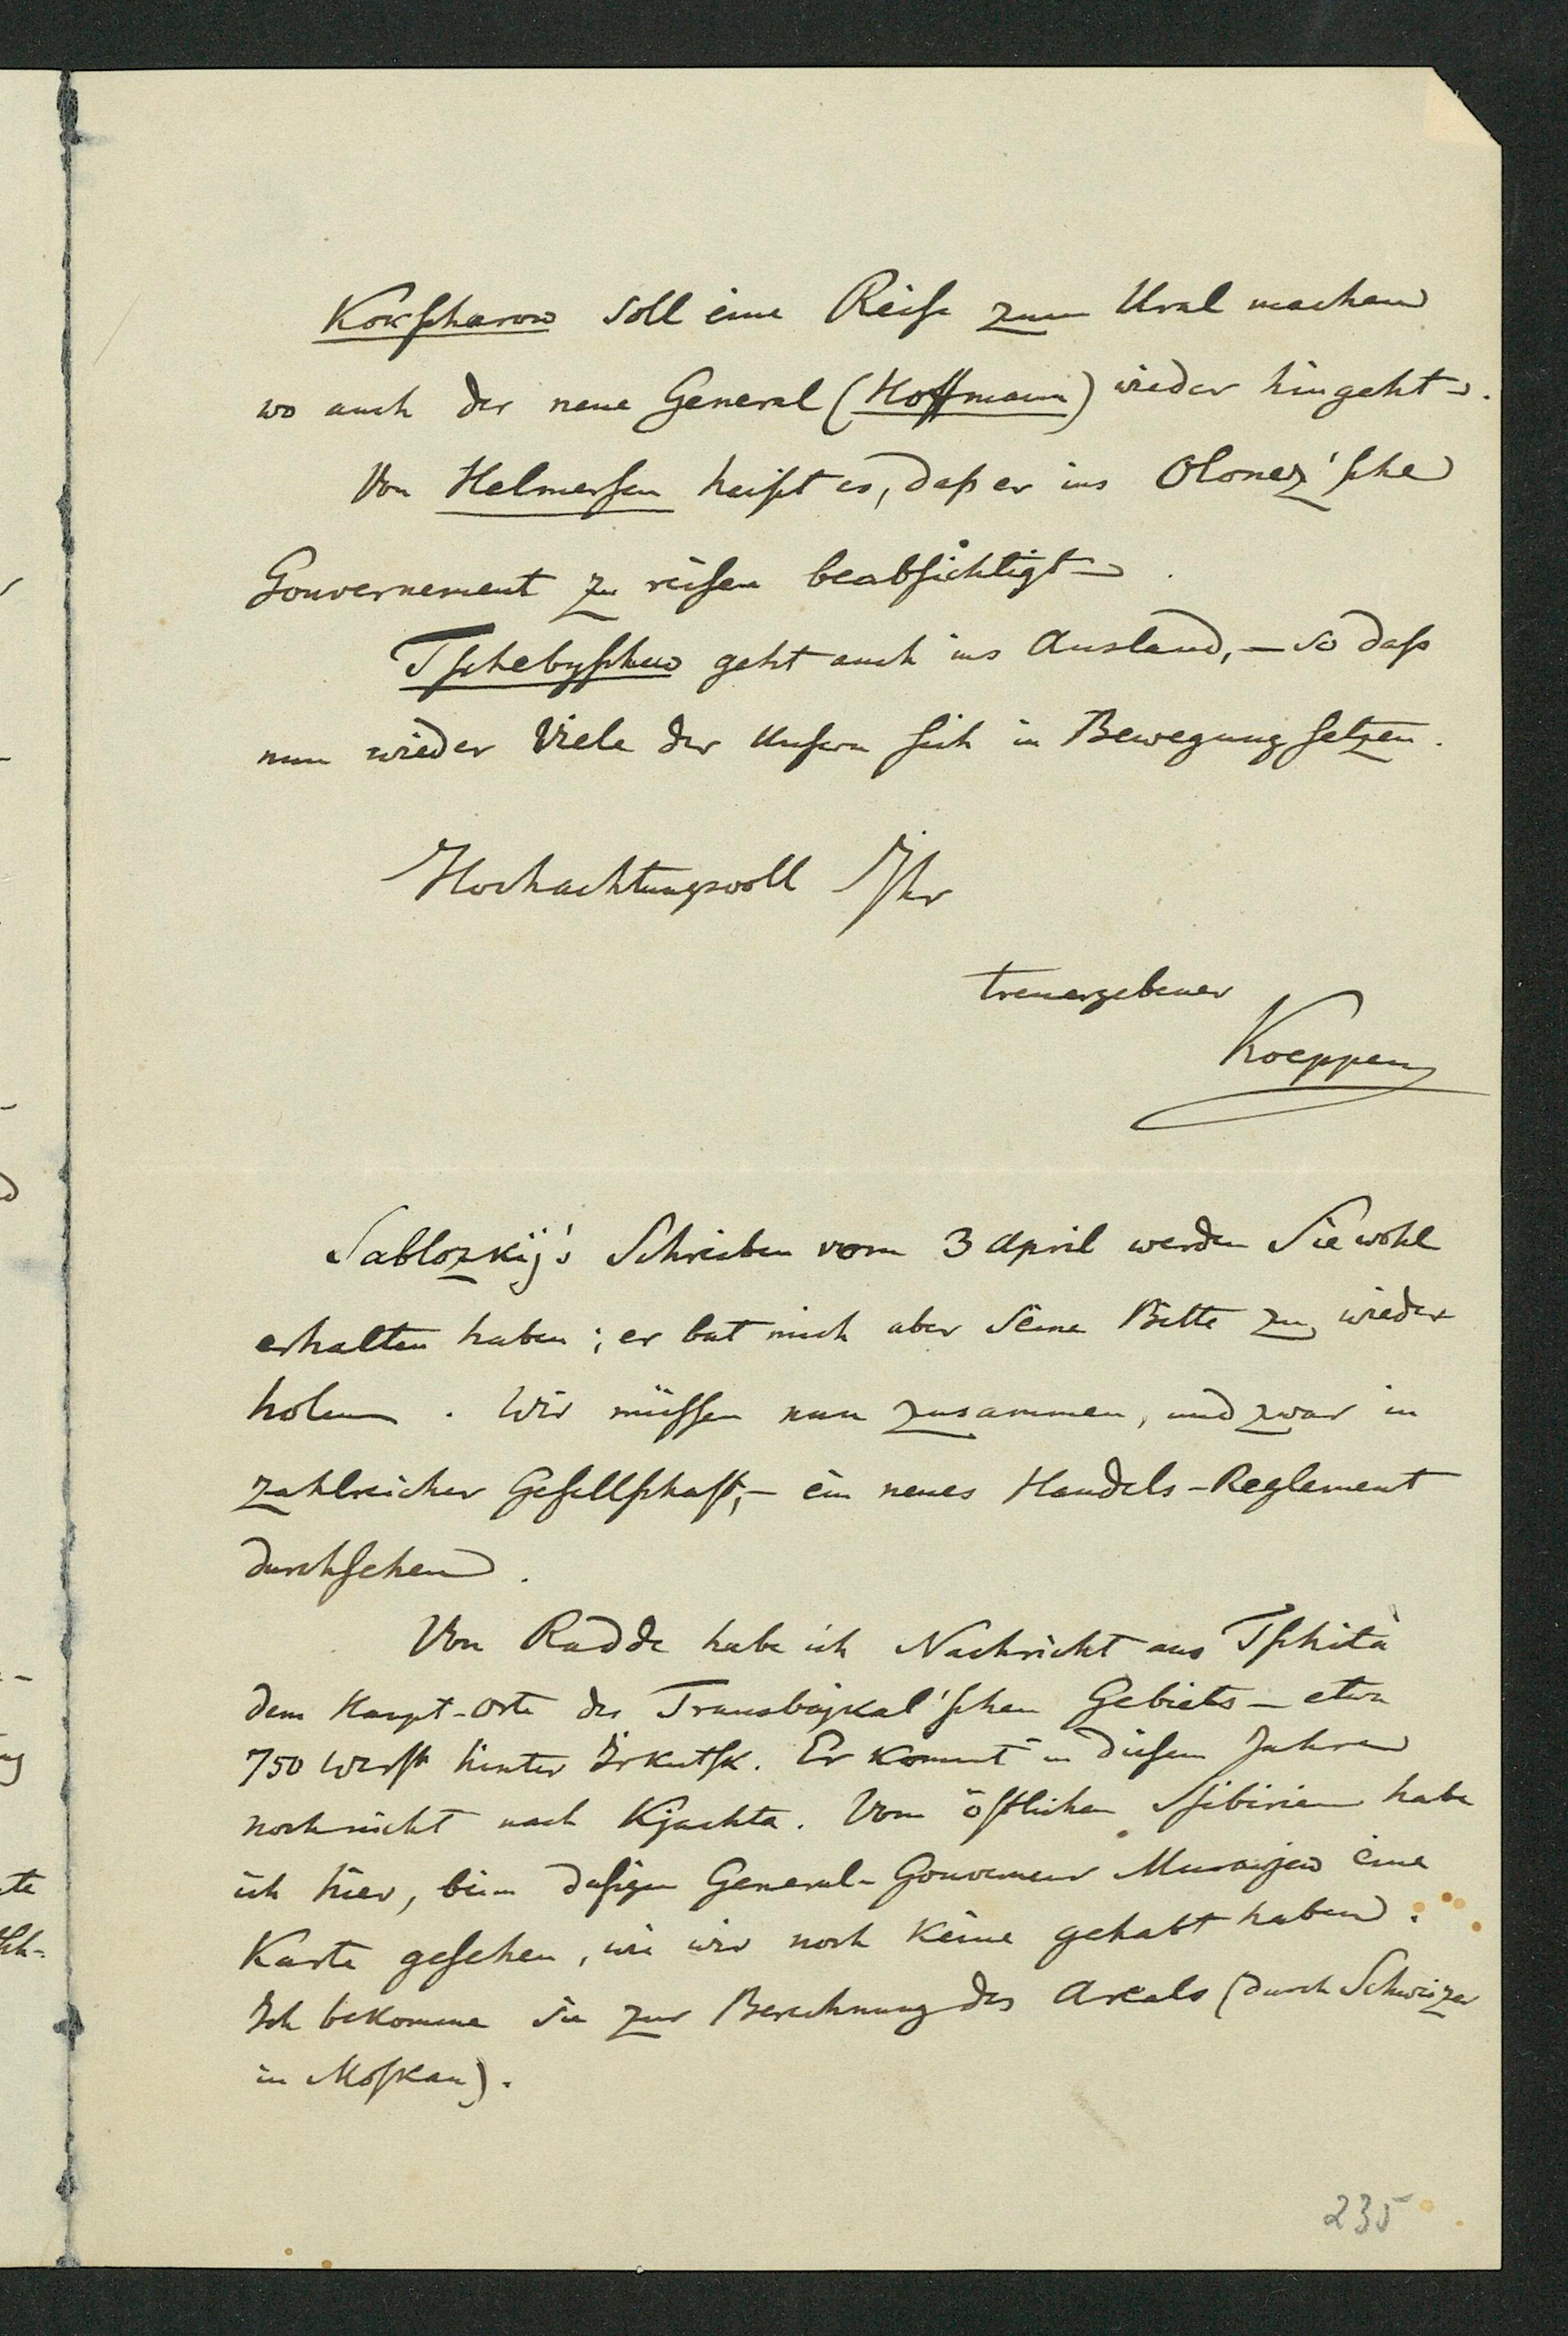 Kokscharow soll eine Reise zum Ural machen
wo auch der neue General (Hoffmann) wieder hingeht.
Von Helmersen heißt es, daß er ins Olonez'sche
Gouvernement zu reisen beabsichtigt.
Tschebyschew geht auch ins Ausland, – so daß
nun wieder Viele der Unsern sich in Bewegung setzen.
Hochachtungsvoll Ihr
treuergebener
Koeppen
Sablozkij's Schreiben vom 3 April werden Sie wohl
erhalten haben; er bat mich aber seine Bitte zu wieder
holen. Wir müssen nun zusammen, und zwar in
zahlreicher Gesellschaft, – ein neues Handels-Reglement
durchsehen.
Von Radde habe ich Nachricht aus Tschità
dem Haupt-Orte des Transbajkal'schen Gebiets – etwa
750 Werst hinter Irkutsk. Er kommt in diesem Jahre
noch nicht nach Kjachta. Vom östlichen Ssibirien habe
ich hier, beim dasigen General-Gouverneur Murawjew eine
Karte gesehen, wie wir noch keine gehabt haben.
Ich bekomme sie zur Berechnung des Areals (durch Schweizer
in Moskau).
235